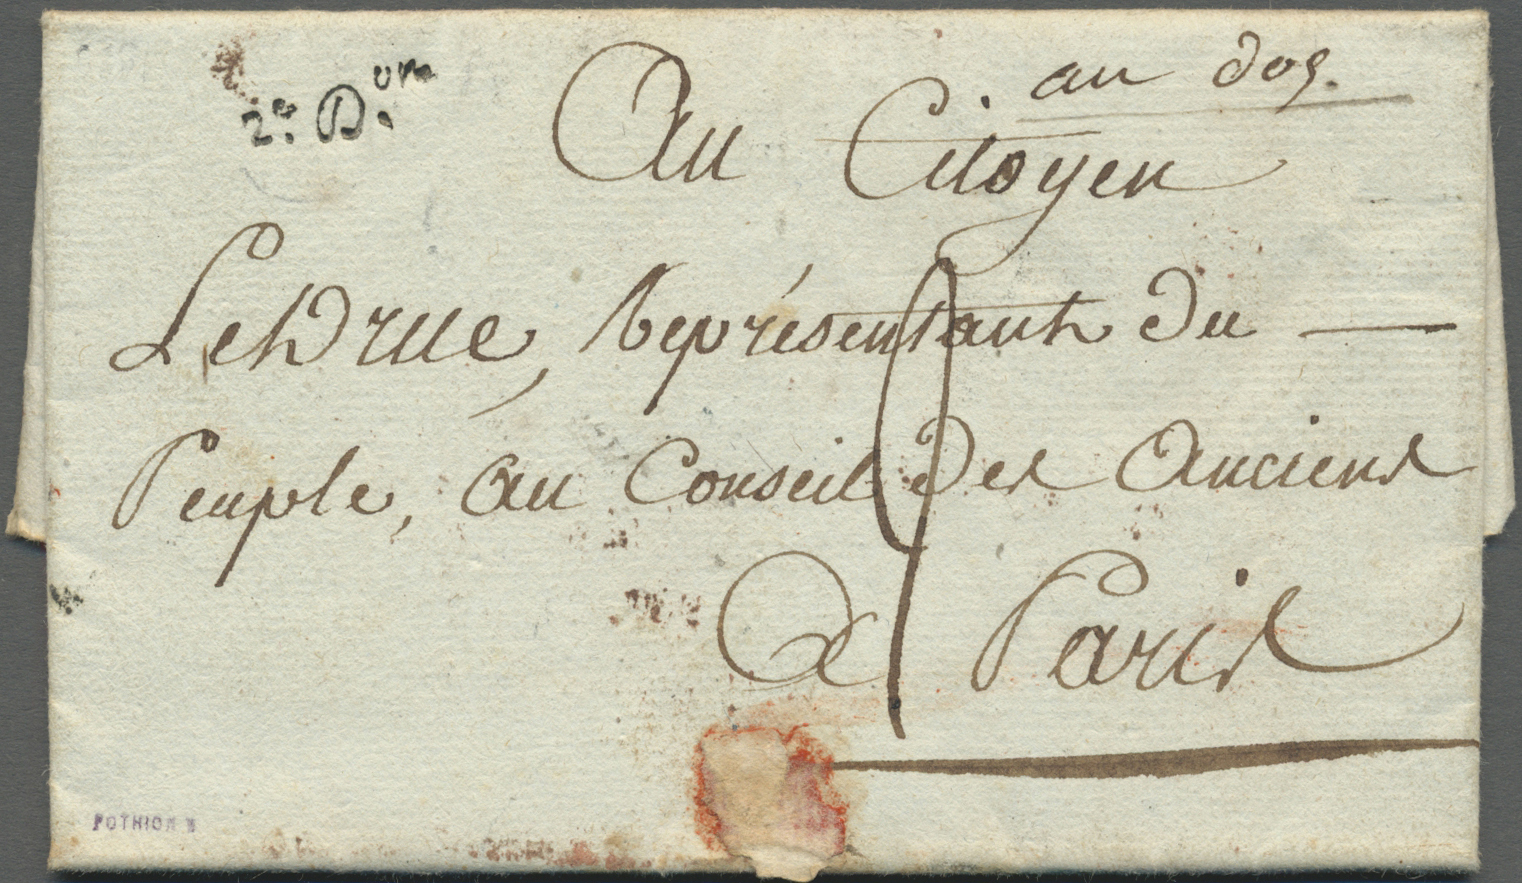 au dos.
2e. D.on
Au Citoyen
Lehdrue, Représentant du
Peuple, au Conseil des Anciens
a Paris
9
POTHION